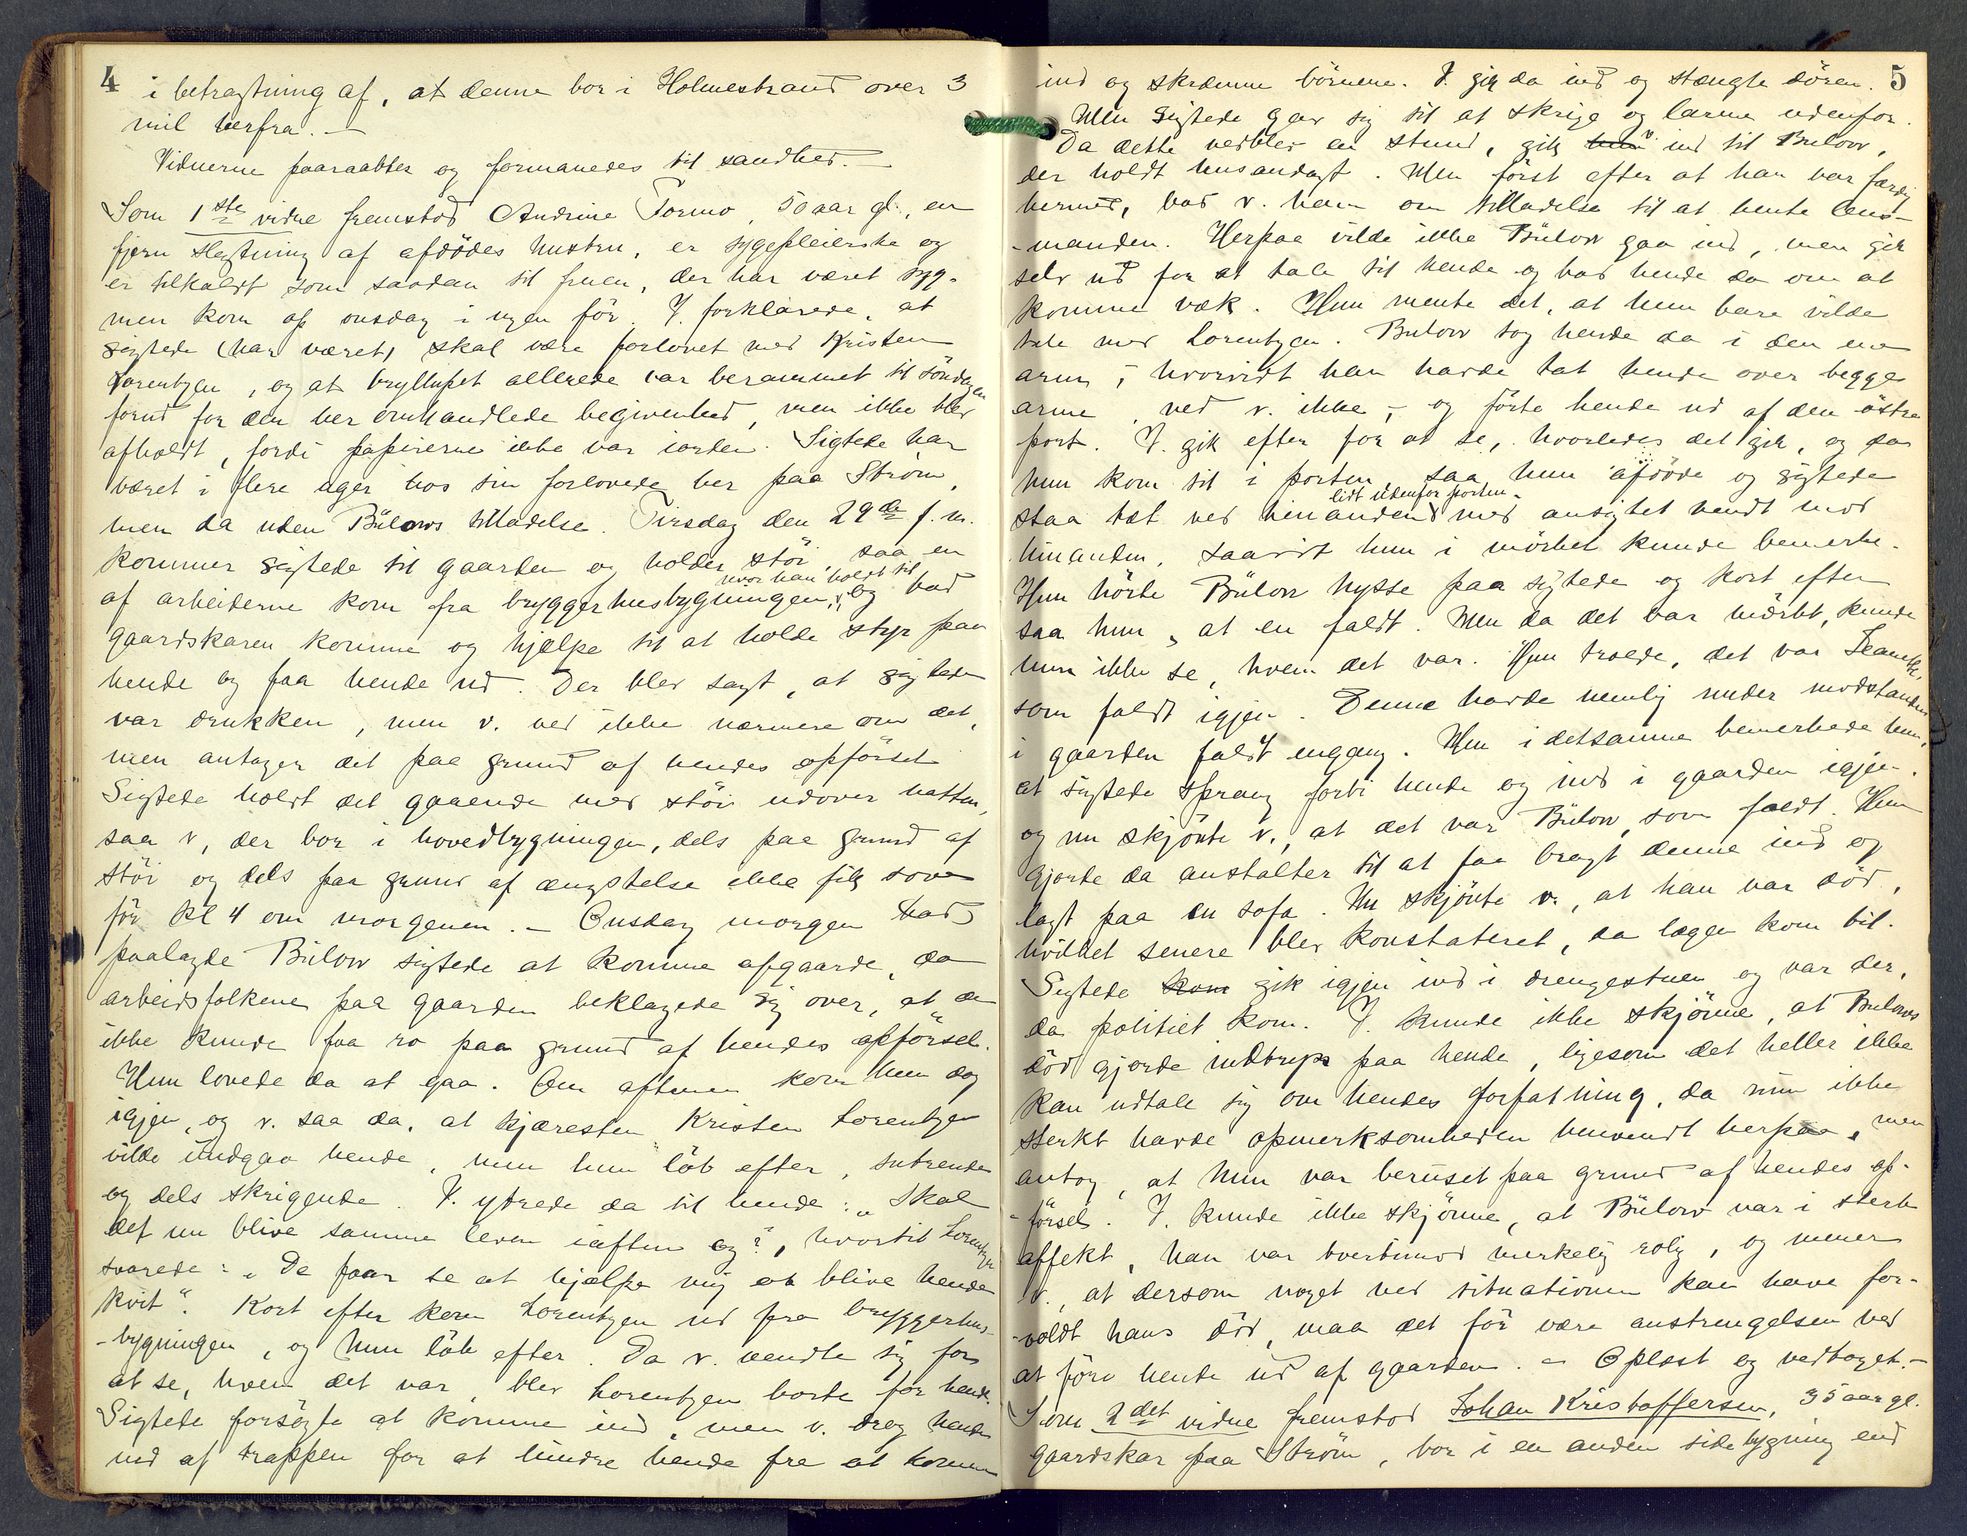 4
i betragtning af, at denne bor i Holmestrand over 3
mil herfra. —
Vidnerne paaraabtes og formanedes til sandhed. —
Som 1ste vidne fremstod Andrine Formo, 50 aar gl., en
fjern slegtning af afdødes hustru, er sygepleierske og
er tilkaldt som saadan til fruen, der har været syg,
men kom op onsdag i ugen før. V. forklarede, at
sigtede (har været) skal være forlovet med Kristen
Lorentzen, og at bryllupet allerede var berammet til söndagen
forud for den her omhandlede begivenhed, men ikke blev
afholdt, fordi papirerne ikke var iorden. Sigtede har
været i flere uger hos sin forlovede her paa Strøm,
men da uden Bülows tilladelse. Tirsdag den 29de f. m.
kommer sigtede til gaarden og holder støi, saa en
af arbeiderne kom fra bryggerhusbygningen, hvor han holdt til, og bad
gaardskaren komme og hjælpe til at holde styr paa
hende og faa hende ud. Der blev sagt, at sigtede
var drukken, men v. ved ikke nærmere om det,
men antager det paa grund af hendes opførsel
Sigtede holdt det gaaende med støi udover natten,
saa v., der bor i hovedbygningen, dels paa grund af
støi og dels paa grund af ængstelse ikke fik sove
før kl 4 om morgenen. — Onsdag morgen bad
paalagde Bülow sigtede at komme afgaarde, da
arbeidsfolkene paa gaarden beklagede sig over, at de
ikke kunde faa ro paa grund af hendes opførsel.
Hun lovede da at gaa. Om aftenen kom hun dog
igjen, og v. saa da, at kjæresten Kristen Lorentzen
vilde undgaa hende, men hun løb efter, sutrende
og dels skrigende. V. ytrede da til hende: „Skal
det nu blive samme leven iaften og?, hvortil Lorentzen
svarede: „De faar se at hjælpe mig at blive hende
kvit“. Kort efter kom Lorentzen ud fra bryggerhus-
-bygningen, og hun løb efter. Da v. vendte sig for
at se, hvem det var, blev Lorentzen borte for hende.
Sigtede forsøgte at komme ind, men v. drog hende
ud af trappen for at hindre hende fra at komme
5
ind og skræmme børnene. V. gik da ind og stængte døren.
Men sigtede gav sig til at skrige og larme udenfor.
Da dette vedblev en stund, gik hun v. ind til Bülow,
der holdt husandagt. Men først efter at han var færdig
hermed, bad v. ham om tilladelse til at hente lens-
-manden. Herpaa vilde ikke Bülow gaa ind, men gik
selv ud for at tale til hende og bad hende da om at
komme væk. Hun mente det, at hun bare vilde
tale med Lorentzen. Bülow tog hende da i den ene
arm, — hvorvidt han havde tat hende over begge
arme ved v. ikke, — og førte hende ud af den østre
port. V. gik efter for at se, hvorledes det gik, og da
hun kom til i porten, saa hun afdøde og sigtede
staa tæt ved hinanden lidt udenfor porten med ansigtet vendt mod
hinanden, saavidt hun i mørket kunde bemerke.
Hun hørte Bülow hysse paa sigtede og kort efter
saa hun, at en faldt. Men da det var mørkt, kunde
hun ikke se, hvem det var. Hun troede, det var
som faldt igjen. Denne havde nemlig under modstanden
i gaarden faldt engang. Men i detsamme bemerkede hun,
at sigtede sprang forbi hende og ind i gaarden igjen.
og nu skjønte v., at det var Bülow, som faldt. Hun
gjorde da anstalter til at faa bragt denne ind og
lagt paa en sofa. Nu skjønte v., at han var død,
hvilket senere blev konstateret, da lægen kom til.
Sigtede kom gik igjen ind i drengestuen og var der,
da politiet kom. V. kunde ikke skjønne, at Bülows
død gjorde indtryk paa hende, ligesom det heller ikke
kan udtale sig om hendes forfatning, da hun ikke
sterkt havde opmerksomheden henvendt herpaa, men
antog, at hun var beruset paa grund af hendes op-
-førsel. V. kunde ikke skjønne, at Bülow var i sterk
affekt, han var tvertimod merkelig rolig, og mener
v., at dersom noget ved situationen kan have for-
-voldt hans død, maa det før være anstrengelsen ved
at føre hende ud af gaarden. — Oplæst og vedtaget. —
Som 2det vidne fremstod Johan Kristoffersen, 35 aar gl.
gaardskar paa Strøm, bor i en anden sidebygning end